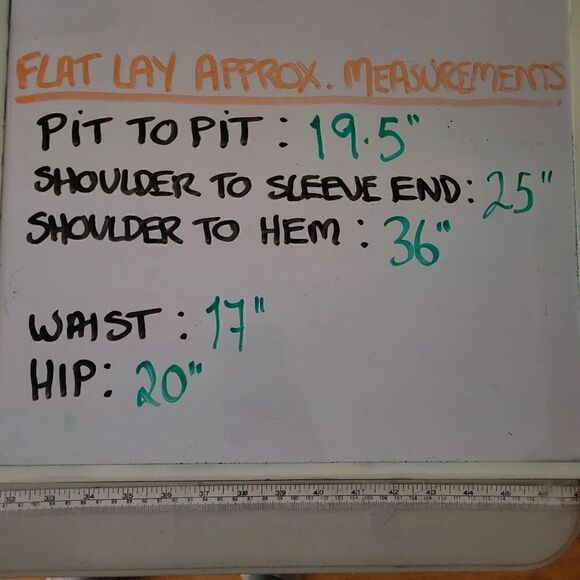 FLAT LAY APPROX. MEASUREMENTS
PIT TO PIT : 19.5"
SHOULDER TO SLEEVE END: 25"
SHOULDER TO HEM : 36"
WAIST : 17"
HIP: 20"
32 33 34 35 36 37 38 39 40 41 42 43 44 45